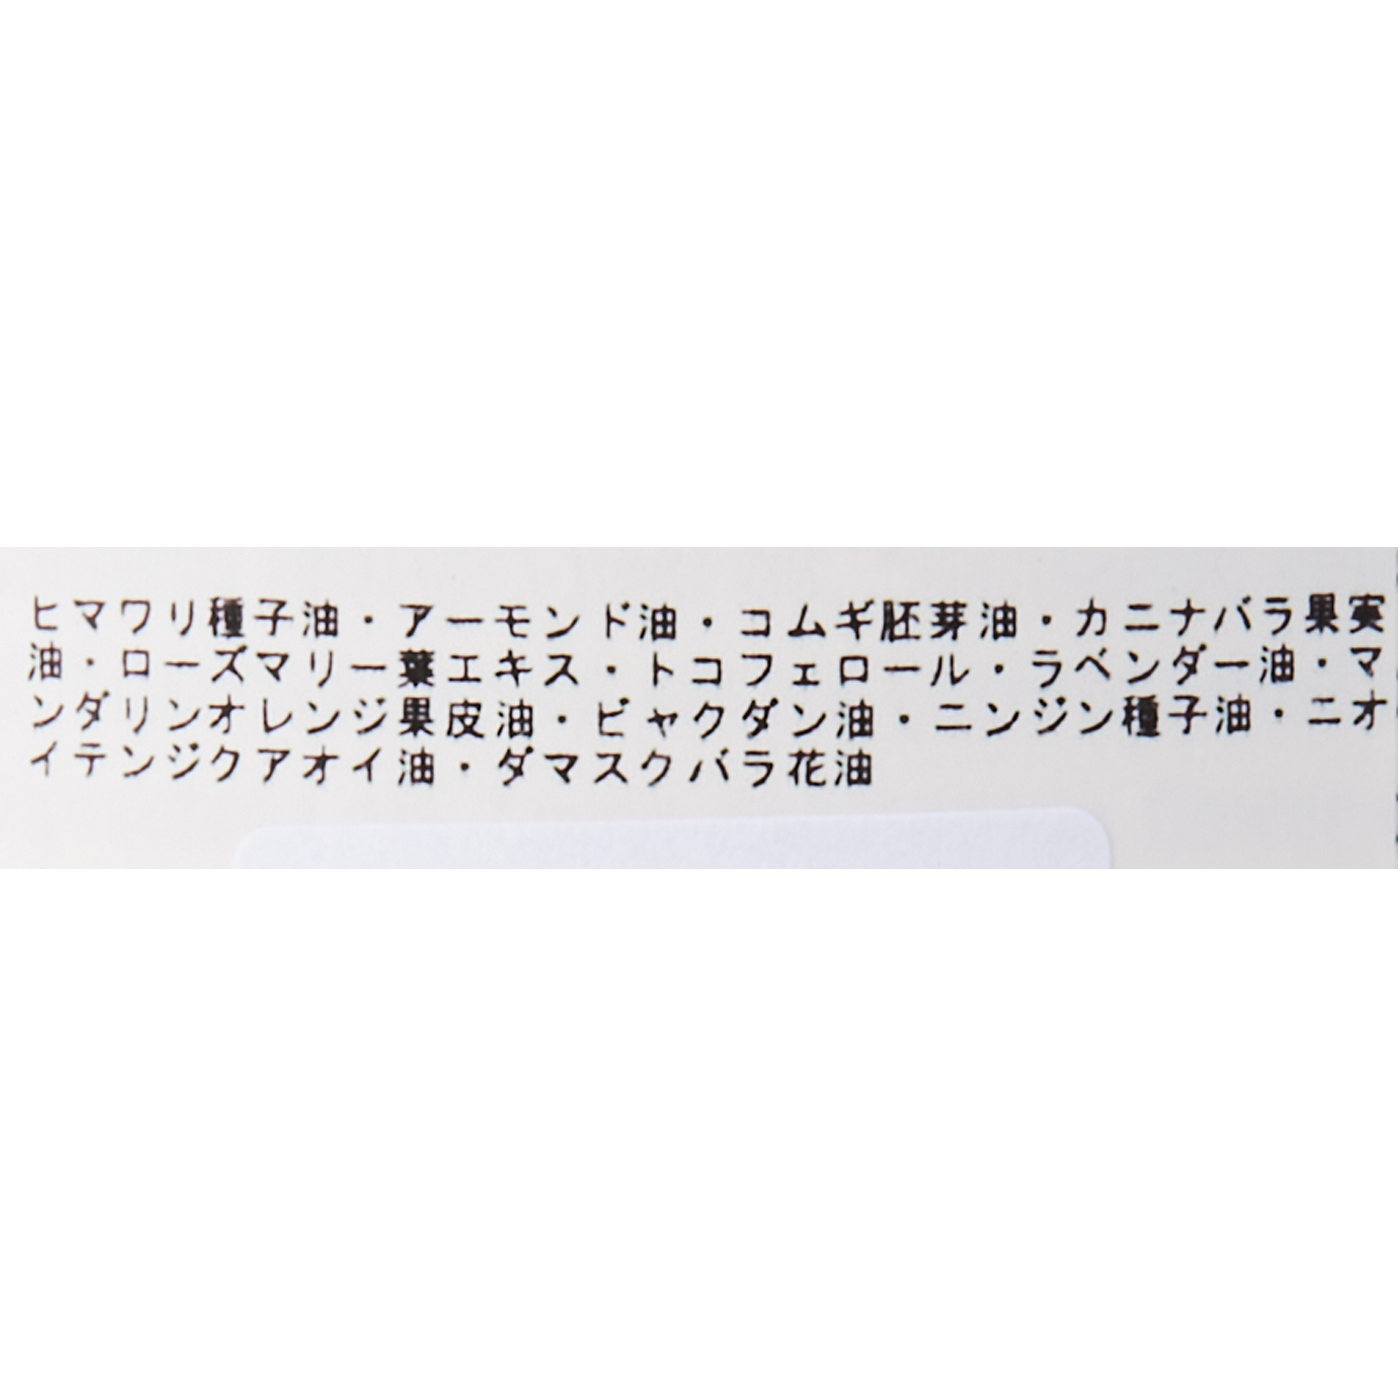 ヒマワリ種子油・アーモンド油・コムギ胚芽油・カニナバラ果実
油・ローズマリー葉エキス・トコフェロール・ラベンダー油・マ
ンダリンオレンジ果皮油・ビャクダン油・ニンジン種子油・ニオ
イテンジクアオイ油・ダマスクバラ花油